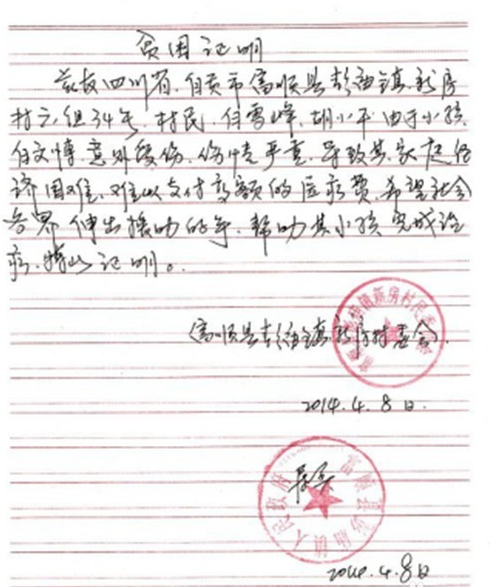 贫困证明
兹有四川省、自贡市富顺县彭庙镇新房
村六组34号、村民、白雪峰、胡小平由于小孩
白文博意外受伤、伤情严重、导致其家庭经
济困难、难以支付高额的医疗费、希望社会
各界伸出援助的手、帮助其小孩完成治
疗、特此证明。
富顺县彭庙镇新房村委会
2014.4.8日.
富顺县彭庙镇人民政府
2014.4.8日